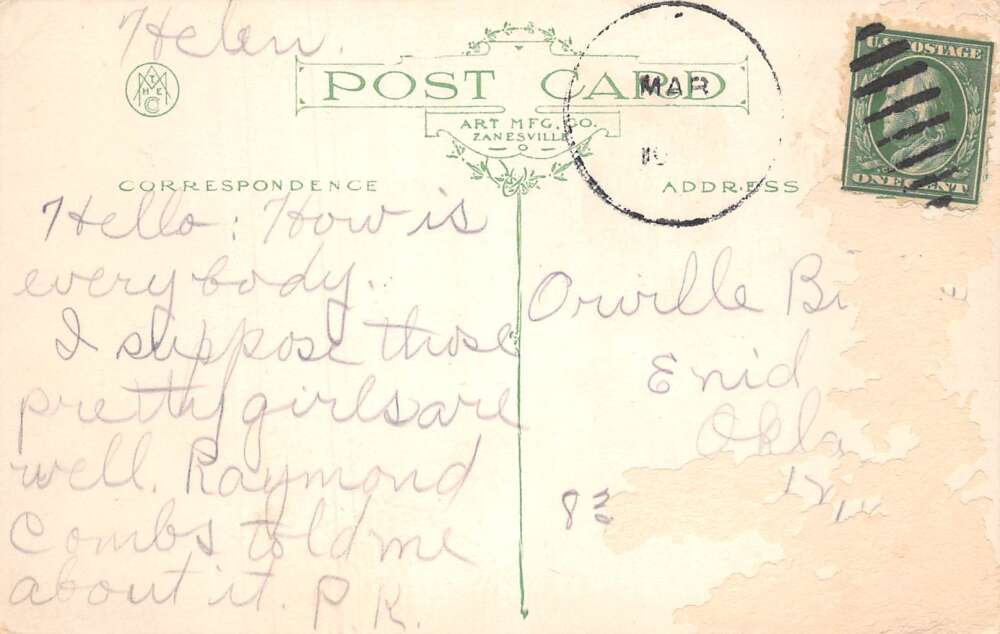 Helen.
THE
©
POST CARD
ART MFG. CO.
ZANESVILLE
O
MAR
U.S. POSTAGE
ONE CENT
CORRESPONDENCE
ADDRESS
Hello: How is
everybody.
I suppose those
pretty girls are
well. Raymond
Combs told me
about it. P. K.
Orville
Enid
Okla